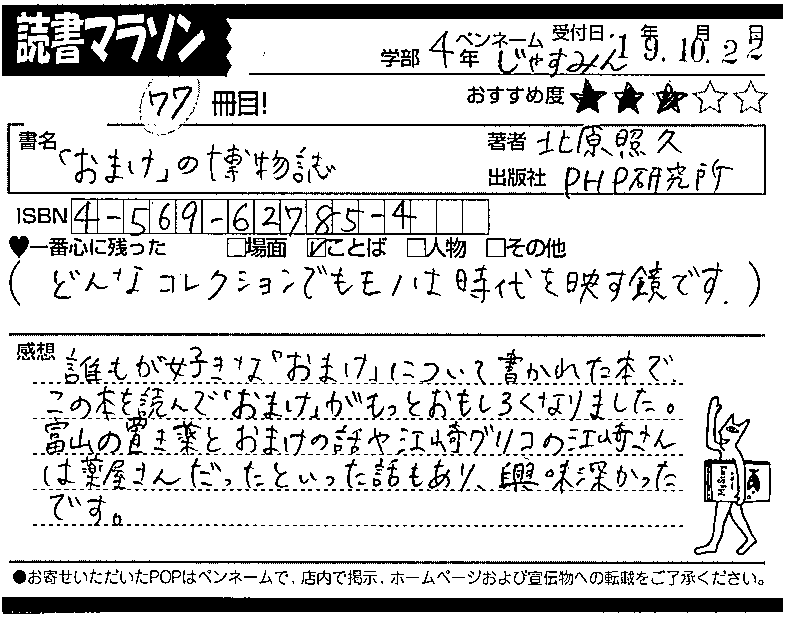 読書マラソン
学部 4年 ペンネーム じゃすみん 受付日. 19年 10月 22日
77 冊目!
おすすめ度 ★★★☆☆
書名 「おまけ」の博物誌
著者 北原照久
出版社 PHP研究所
ISBN 4-569-62785-4
♥一番心に残った □場面 ☑ことば □人物 □その他
(どんなコレクションでもモノは時代を映す鏡です.)
感想 誰もが好きな「おまけ」について書かれた本で
この本を読んで「おまけ」がもっとおもしろくなりました。
富山の置き薬とおまけの話や江崎グリコの江崎さん
は薬屋さんだったといった話もあり、興味深かった
です。
●お寄せいただいたPOPはペンネームで、店内で掲示、ホームページおよび宣伝物への転載をご了承ください。